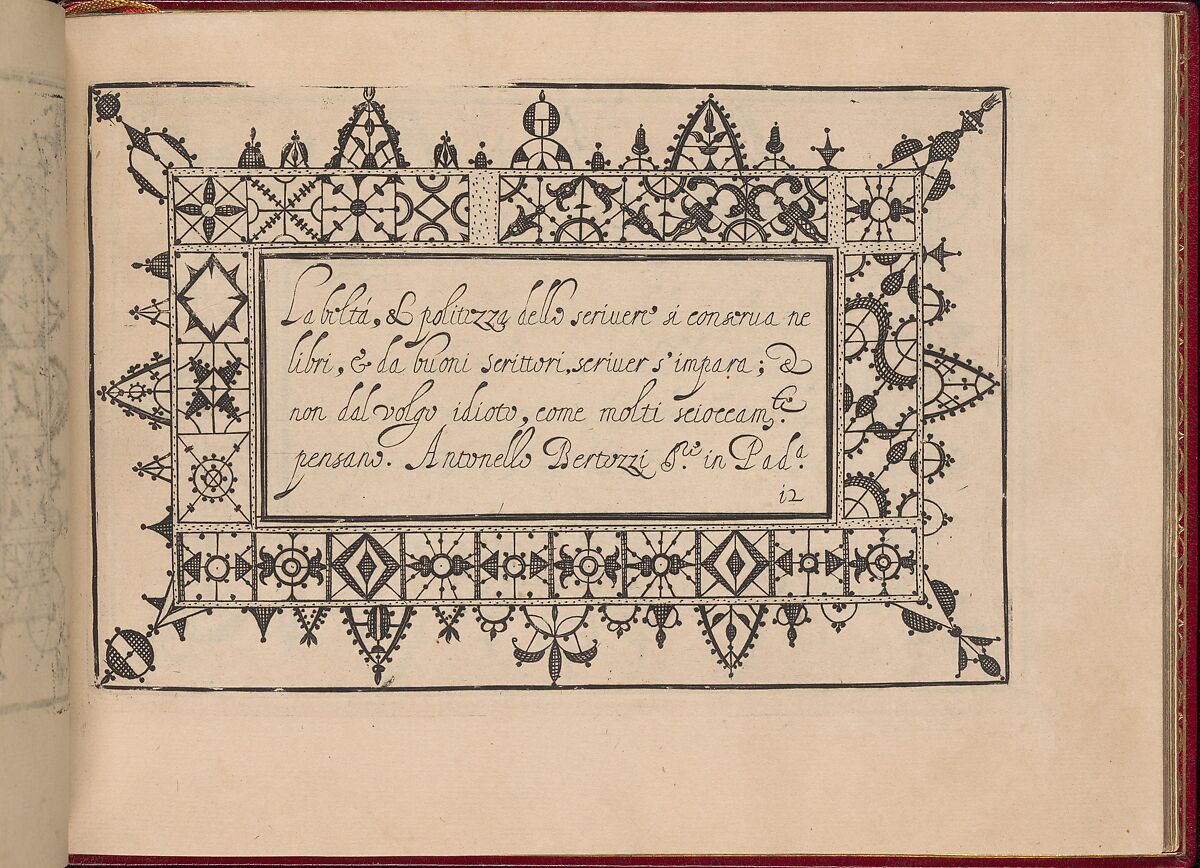 La beltá, & politezza dello scriuere si conserua ne
libri, & da buoni scrittori, scriuer s'impara; &
non dal volgo idioto, come molti scioccam.te
pensano. Antonello Bertozzi in Pad.a
12